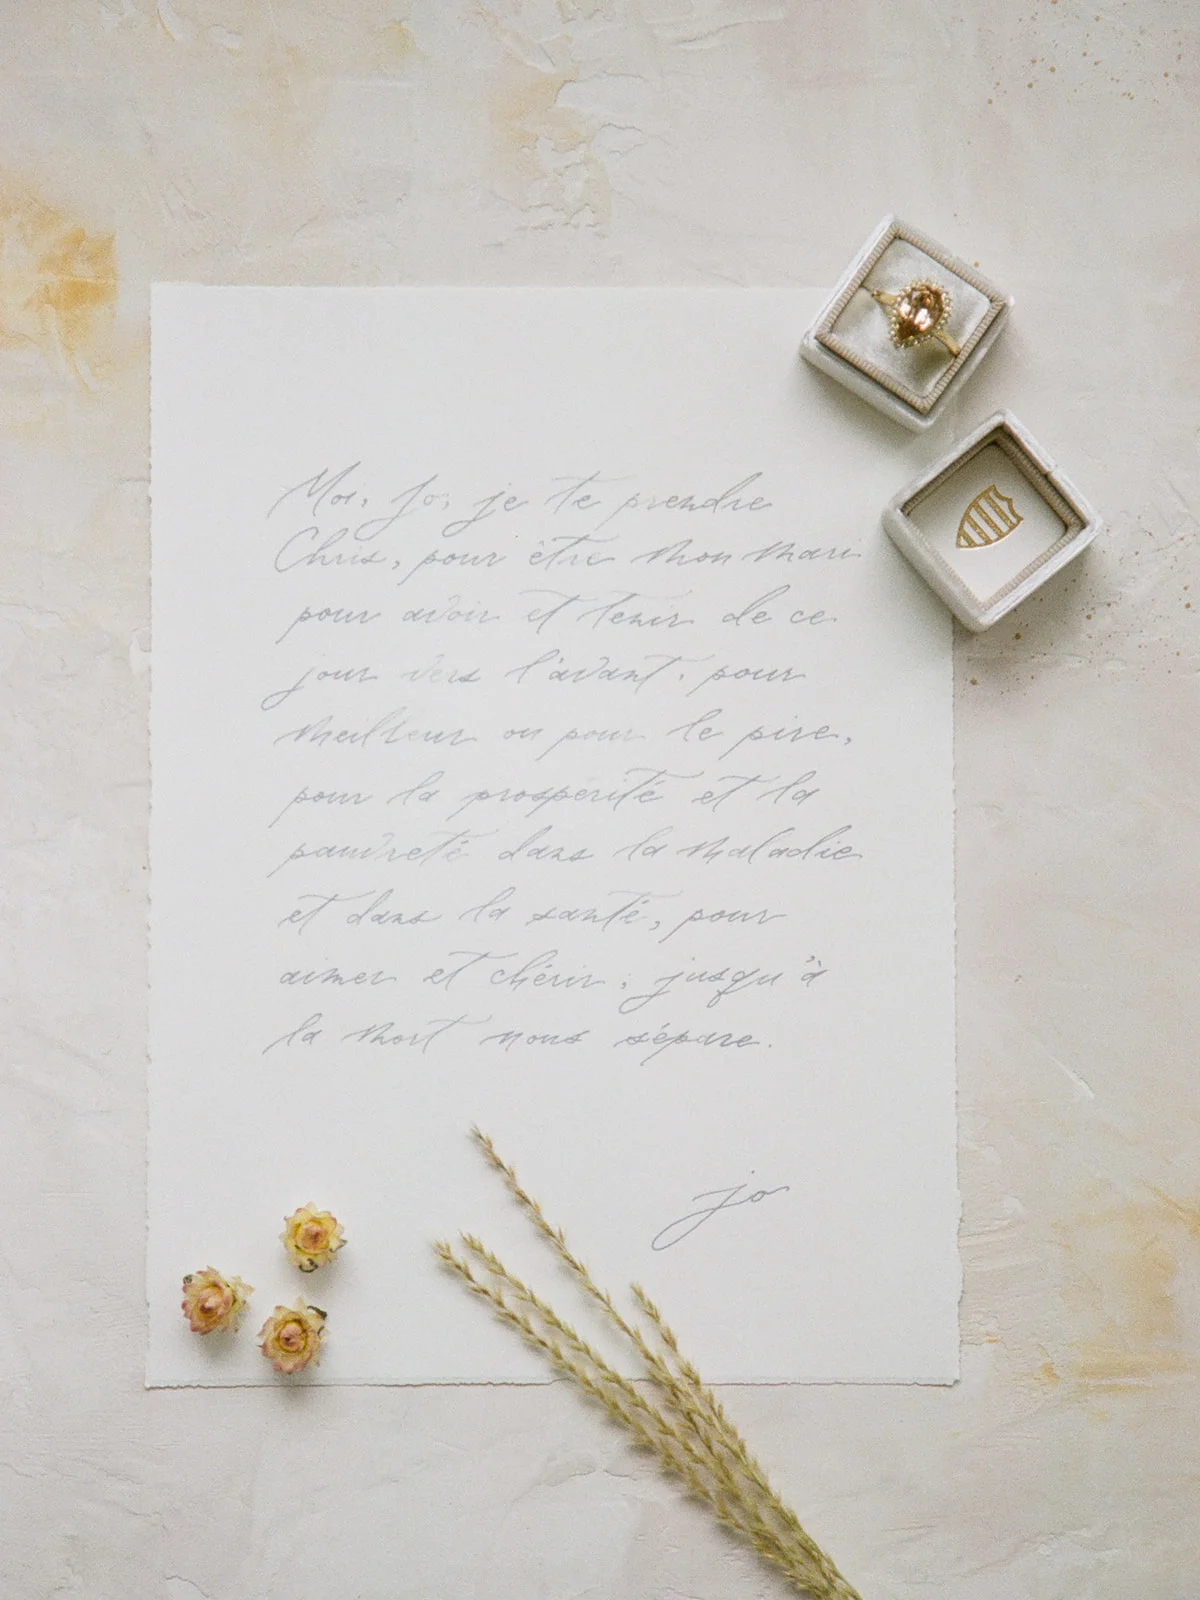 Moi, Jo, je te prendre
Chris, pour être mon mari
pour avoir et tenir de ce
jour vers l'avant, pour
meilleur ou pour le pire,
pour la prosperité et la
pauvreté dans la maladie
et dans la santé, pour
aimer et chérir, jusqu'à
la mort nous sépare.
jo